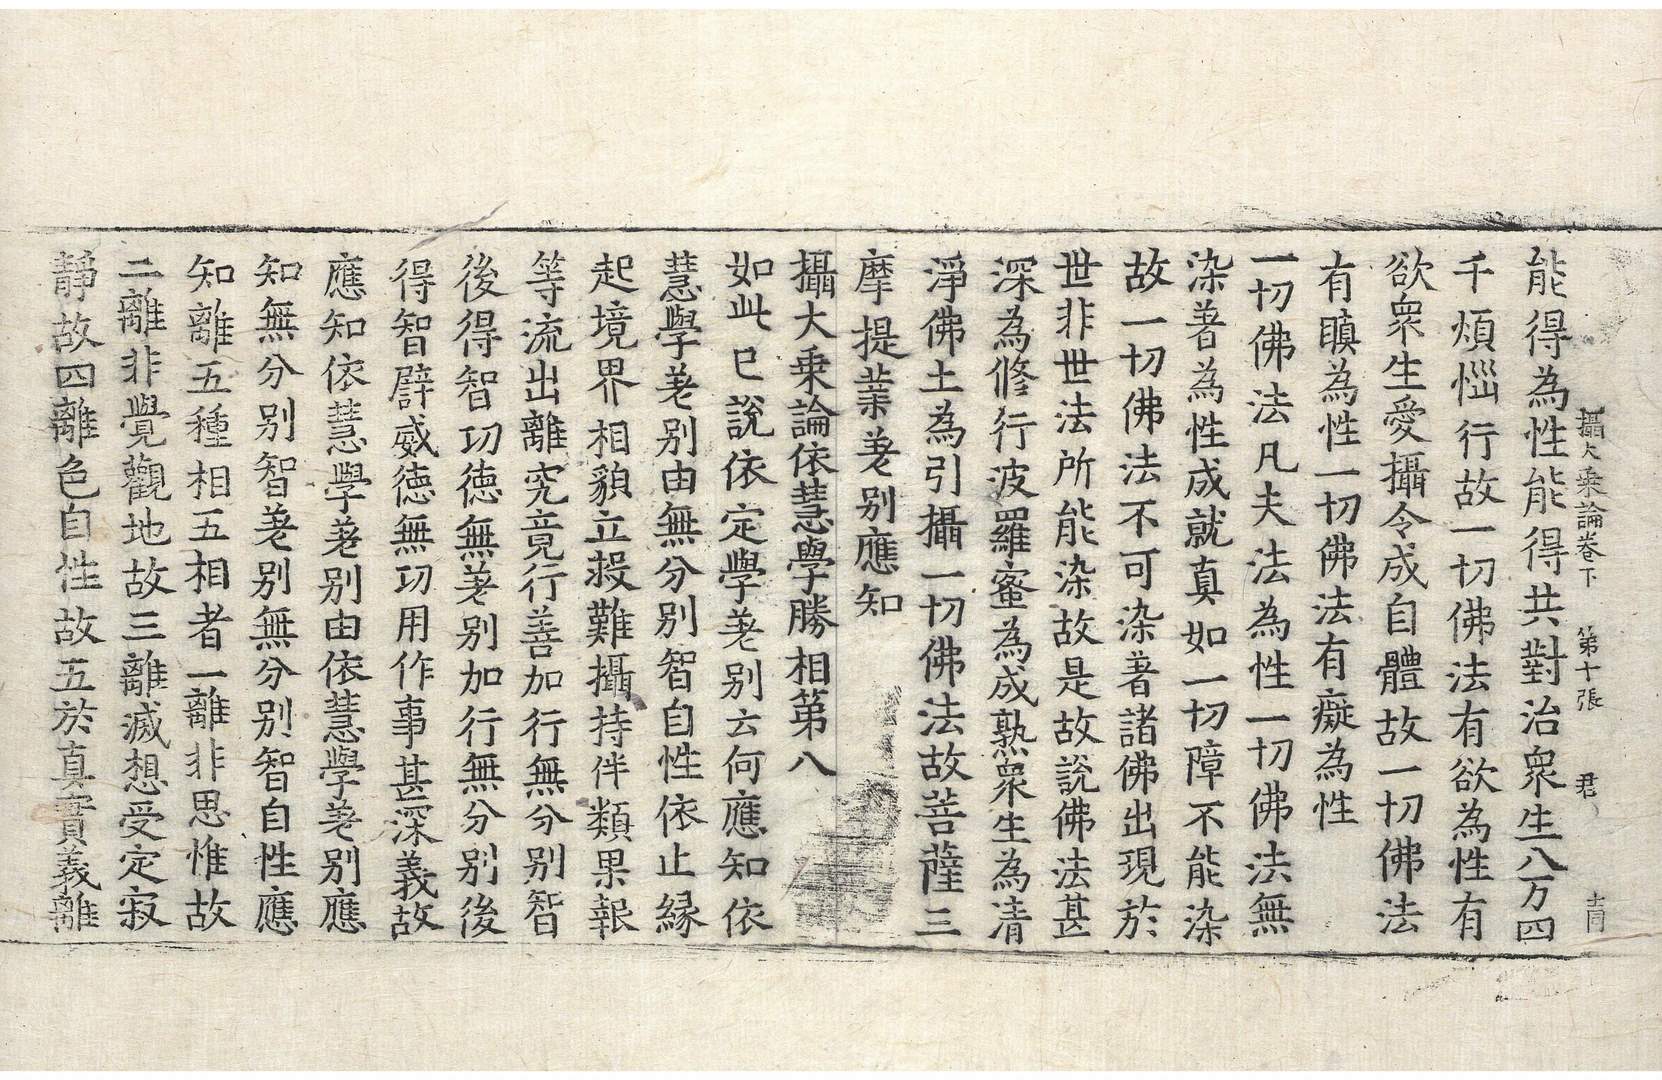 攝大乗論卷下　第十張　君
能得為性能得共對治衆生八万四
千煩惱行故一切佛法有欲為性有
欲衆生愛攝令成自體故一切佛法
有瞋為性一切佛法有癡為性
一切佛法凡夫法為性一切佛法無
染著為性成就真如一切障不能染
故一切佛法不可染著諸佛出現於
世非世法所能染故是故説佛法甚
深為修行波羅蜜為成熟衆生為清
淨佛土為引攝一切佛法故菩薩三
摩提業差別應知
攝大乗論依慧學勝相第八
如此已說依定學差別云何應知依
慧學差別由無分別智自性依止緣
起境界相貌立救難攝持伴類果報
等流出離究竟行善加行無分別智
後得智功德無差別加行無分別後
得智譬威徳無功用作事甚深義故
應知依慧學差別由依慧學差別應
知無分別智差別無分別智自性應
知離五種相五相者一離非思惟故
二離非覺觀地故三離滅想受定寂
靜故四離色自性故五於真實義離